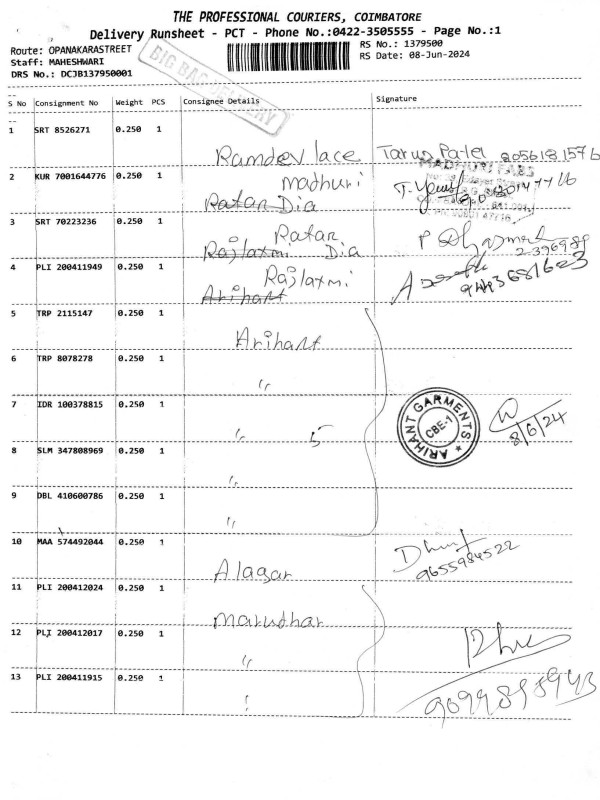 THE PROFESSIONAL COURIERS, COIMBATORE
Delivery Runsheet - PCT - Phone No.:0422-3505555 - Page No.:1
Route: OPANAKARASTREET
Staff: MAHESHWARI
DRS No.: DCJB137950001
RS No.: 1379500
RS Date: 08-Jun-2024
BIG BAG DELIVERY
S No Consignment No Weight PCS Consignee Details Signature
1 SRT 8526271 0.250 1 Ramdev lace Tarun Patel 8056181576
2 KUR 7001644776 0.250 1 madhuri
Ratan Dia
MADHURI FABS
3 SRT 70223236 0.250 1 Ratan
Rajlaxmi Dia
4 PLI 200411949 0.250 1 Rajlaxmi
Arihant
5 TRP 2115147 0.250 1 Arihant
6 TRP 8078278 0.250 1 "
7 IDR 100378815 0.250 1 " 5
ARIHANT GARMENTS
CBE-1
8/6/24
8 SLM 347808969 0.250 1 "
9 DBL 410600786 0.250 1 "
10 MAA 574492044 0.250 1 Alagar
9655984522
11 PLI 200412024 0.250 1 marudhar
12 PLI 200412017 0.250 1 "
13 PLI 200411915 0.250 1 "